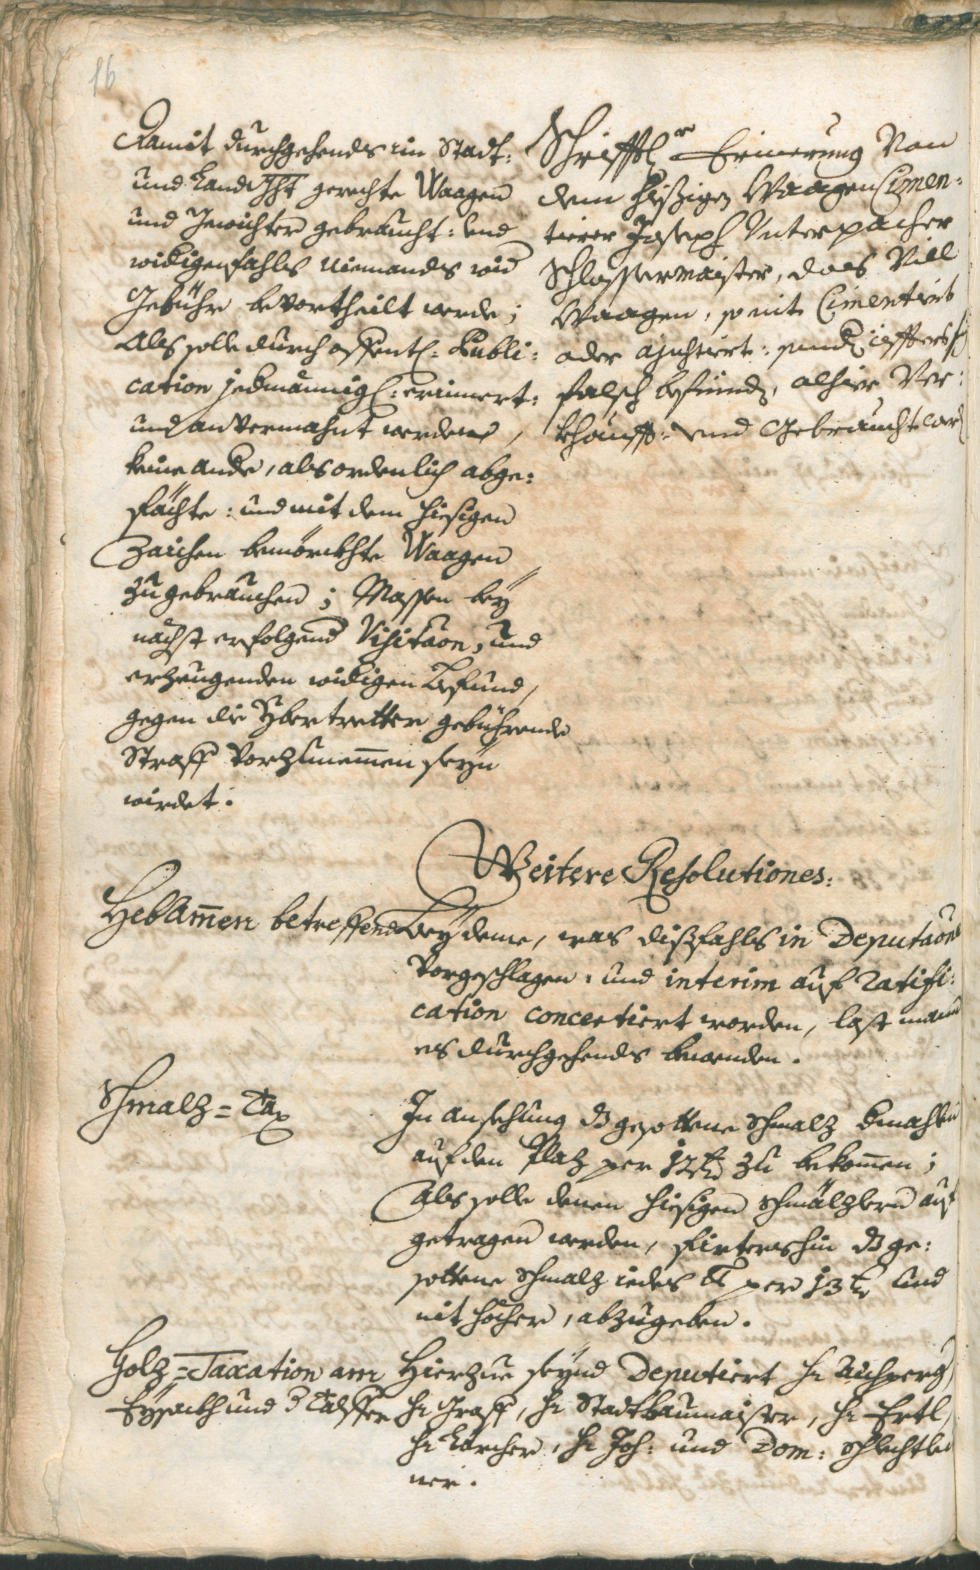 16
Damit durchgehends in Stadt:
und Landtght gerechte Waagen
und Gewichter gebraucht: und
widrigenfahls niemands wid
Gebühr bevortheilt werde;
Als solle durch offentl: Publi:
cation jedmännigl: erinnert:
und anvermahnt werden,
keine andre, als ordenlich abge:
fächte: und mit dem hiesigen
Zaichen bemörckhte Waagen
zugebrauchen; Massen bey
nächst erfolgend Visitaon, und
erzeugenden widrigen Befund,
gegen die Ybertretter gebührende
Straff vorzunemmen seyn
wirdet.
Schrifftl Erinnerung Von
dem hießigen Waagen Cimen:
tierer Joseph Unterpacher
Schlossermaister, das Vill
Waagen, so nit Cimentiert
oder ajustiert: sondern öffters
falsch befundn, alhier Ver:
khaufft: und Gebraucht word
Weitere Resolutiones.
Heb Ammen betreffend
Bey deme, was dißfahls in Deputaon
vorgeschlagen, und interim auf ratifi:
cation concertiert worden, last mann
es durchgehends bewenden.
Schmalz=Tax
In ansehung dz gesottene Schmalz dermahlen
auf den Plaz per 12 kr zu bekommen;
Als solle denen hiesigen Schmälzlern auf
getragen werden, fürterhin dz ge:
sottene Schmalz iedes lb per 13 kr und
nit höcher, abzugeben.
Holz=Taxation am
Eysackh und Talffer
Hierzue seynd Deputiert H: Aichperg,
H: Graff, H: Stadtbaumaister, H: Ertl,
H: Larcher, H: Joh: und Dom: Schlechtlei
ner.